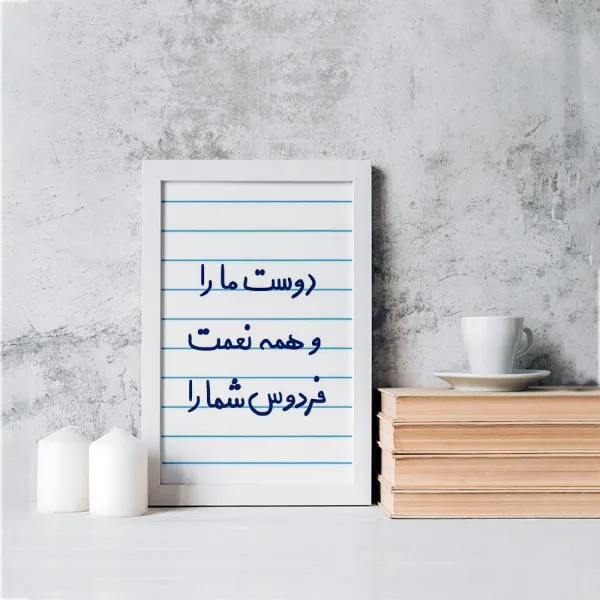 دوست ما را
و همه نعمت
فردوس شما را